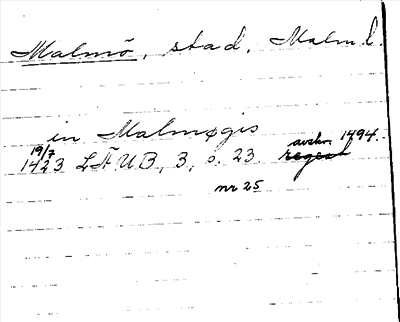 Malmö, stad, Malm.l.
in Malmøgis
19/7 avskr. 1494.
1423 LÄUB, 3, s. 23 regest
nr 25